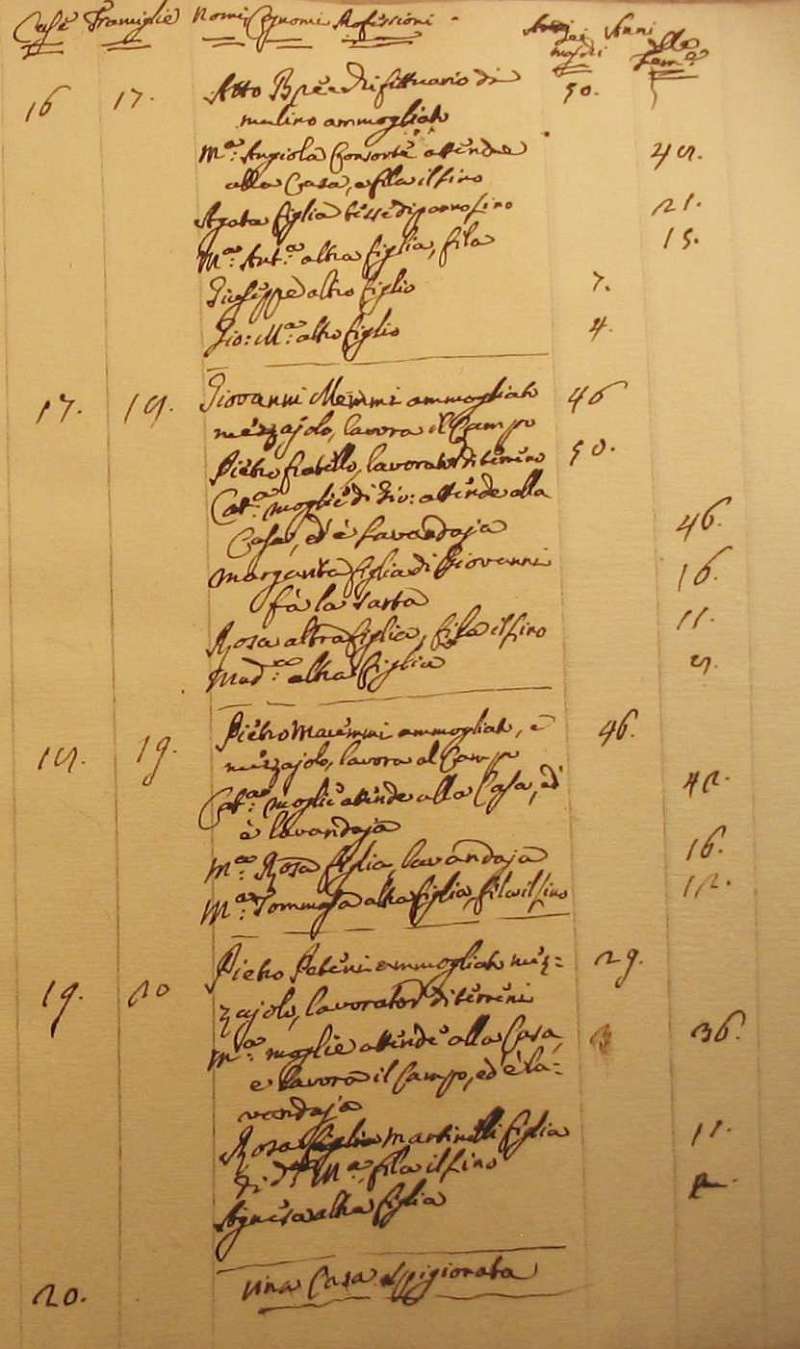 Case Famiglie Nomi Cognomi Professioni Anni dei maschi Anni delle Fem.e
16 17. Atto affittuario di 50.
mulino ammogliato
M.a Angiola Consorte attende 48.
alla Casa, e fila il lino
Agata figlia tesse di panno lino 21.
M.a Ant.a altra figlia, fila 15.
Giuseppe altro figlio 7.
Gio: M.a altro figlio 4.
17. 18. Giovanni Memmi ammogliato 46
mezzajolo, lavora il Campo
Pietro fratello, lavorator di terreno 50.
Cat.a moglie di Gio: attende alla
Casa, ed è lavandaja 46.
Margarita figlia di Giovanni 16.
fà la sarta
Rosa altra figlia, fila il lino 11.
Mad.a altra figlia 8.
18. 19. Pietro ammogliato, e 46.
mezzajolo, lavora al Campo
Cat.a moglie attende alla Casa, ed 42.
è lavandaja
M.a Rosa figlia lavandaja 16.
M.a Tommasa altra figlia fila il lino 12.
19. 20 Pietro Peteni ammogliato mez=
zajolo, lavorator di terreni 29.
M.a moglie attende alla Casa, 36.
e lavora il Campo, ed è la=
vandaja
Rosa Martinelli figlia 11.
di d.a M.a, fila il lino
Agnesa altra figlia
20. Una Casa spigionata